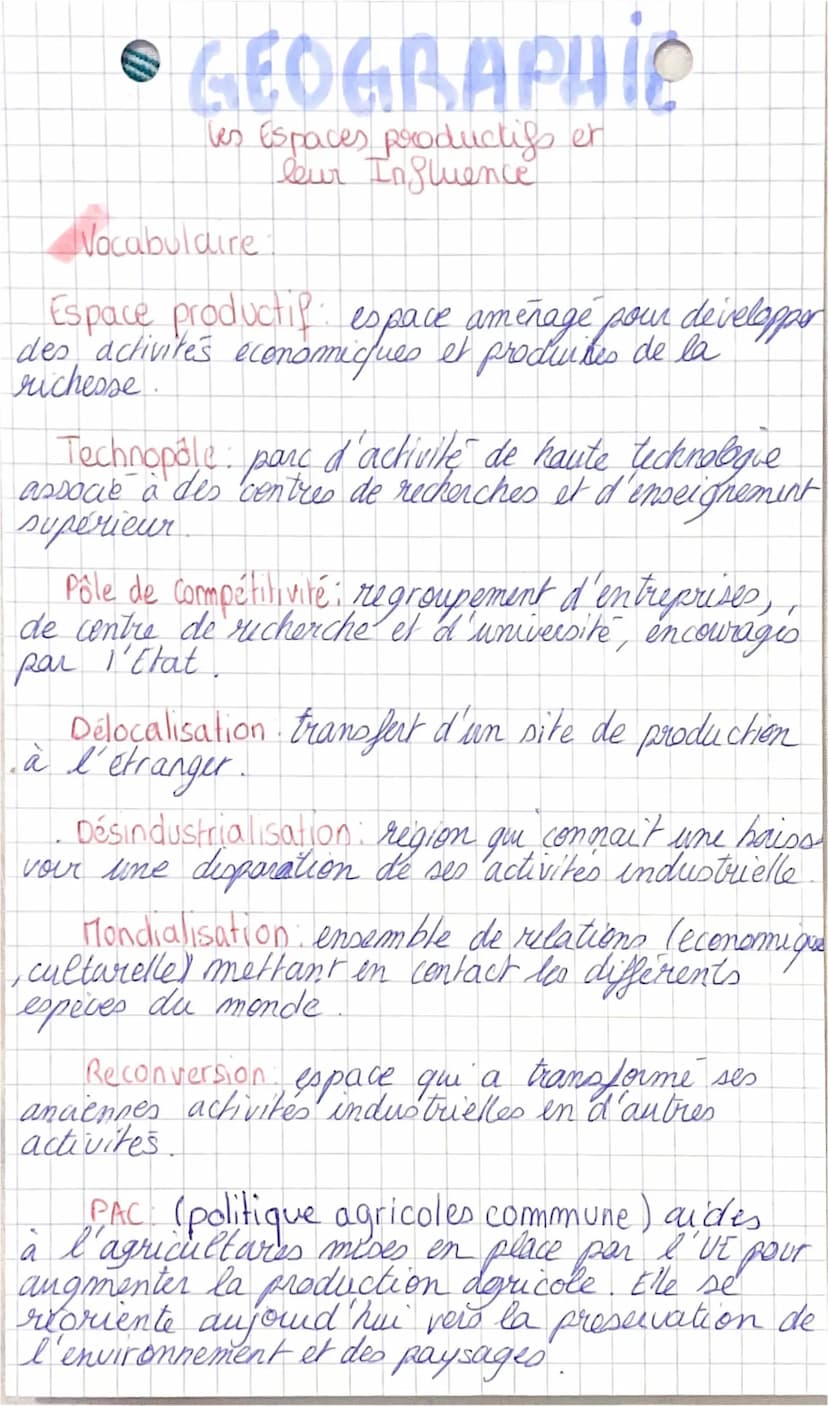 GEOGRAPHIE
les Espaces productifs et
leur Influence
Vocabulaire :
Espace productif : espace aménagé pour développer
des activités économiques et produites de la
richesse.
Technopôle : parc d'activité de haute technologie
associé à des centres de recherches et d'enseignement
supérieur.
Pôle de Compétitivité : regroupement d'entreprises,
de centre de recherche et d'université, encouragés
par l'Etat.
Délocalisation : transfert d'un site de production
à l'étranger.
Désindustrialisation : région qui connait une baisse
voir une disparation de ses activités industrielle.
Mondialisation : ensemble de relations (economique
, culturelle) mettant en contact les différents
espèces du monde.
Reconversion : espace qui a transformé ses
anciennes activités industrielles en d'autres
activités.
PAC : (politique agricoles commune) aides
à l'agricultures mises en place par l'UE pour
augmenter la production agricole. Elle se
réoriente aujourd'hui vers la préservation de
l'environnement et des paysages.